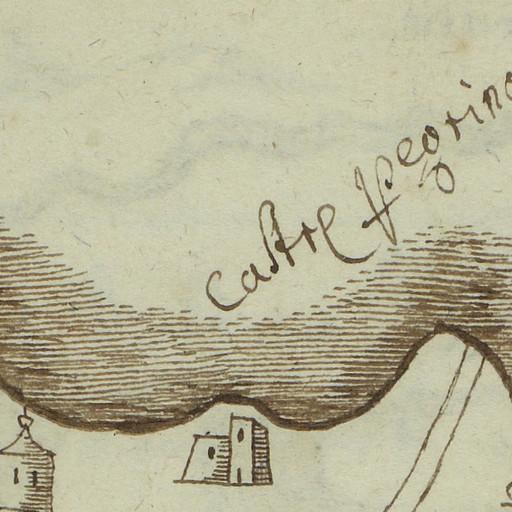 Castre pegrino